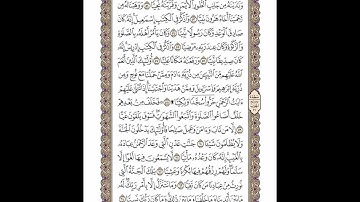 وَنَٰدَيْنَٰهُ مِن جَانِبِ ٱلطُّورِ ٱلْأَيْمَنِ وَقَرَّبْنَٰهُ نَجِيًّا ٥٢ وَوَهَبْنَا لَهُۥ
مِن رَّحْمَتِنَآ أَخَاهُ هَٰرُونَ نَبِيًّا ٥٣ وَٱذْكُرْ فِى ٱلْكِتَٰبِ إِسْمَٰعِيلَ إِنَّهُۥ كَانَ
صَادِقَ ٱلْوَعْدِ وَكَانَ رَسُولًا نَّبِيًّا ٥٤ وَكَانَ يَأْمُرُ أَهْلَهُۥ بِٱلصَّلَوٰةِ
وَٱلزَّكَوٰةِ وَكَانَ عِندَ رَبِّهِۦ مَرْضِيًّا ٥٥ وَٱذْكُرْ فِى ٱلْكِتَٰبِ إِدْرِيسَ إِنَّهُۥ كَانَ
صِدِّيقًا نَّبِيًّا ٥٦ وَرَفَعْنَٰهُ مَكَانًا عَلِيًّا ٥٧ أُو۟لَٰٓئِكَ ٱلَّذِينَ أَنْعَمَ
ٱللَّهُ عَلَيْهِم مِّنَ ٱلنَّبِيِّۦنَ مِن ذُرِّيَّةِ ءَادَمَ وَمِمَّنْ حَمَلْنَا مَعَ نُوحٍ وَمِن
ذُرِّيَّةِ إِبْرَٰهِيمَ وَإِسْرَٰٓءِيلَ وَمِمَّنْ هَدَيْنَا وَٱجْتَبَيْنَآ إِذَا تُتْلَىٰ عَلَيْهِمْ
ءَايَٰتُ ٱلرَّحْمَٰنِ خَرُّوا۟ سُجَّدًا وَبُكِيًّا ٥٨ فَخَلَفَ مِنۢ بَعْدِهِمْ
خَلْفٌ أَضَاعُوا۟ ٱلصَّلَوٰةَ وَٱتَّبَعُوا۟ ٱلشَّهَوَٰتِ فَسَوْفَ يَلْقَوْنَ غَيًّا
٥٩ إِلَّا مَن تَابَ وَءَامَنَ وَعَمِلَ صَٰلِحًا فَأُو۟لَٰٓئِكَ يَدْخُلُونَ ٱلْجَنَّةَ
وَلَا يُظْلَمُونَ شَيْـًٔا ٦٠ جَنَّٰتِ عَدْنٍ ٱلَّتِى وَعَدَ ٱلرَّحْمَٰنُ عِبَادَهُۥ
بِٱلْغَيْبِ إِنَّهُۥ كَانَ وَعْدُهُۥ مَأْتِيًّا ٦١ لَّا يَسْمَعُونَ فِيهَا لَغْوًا إِلَّا
سَلَٰمًا وَلَهُمْ رِزْقُهُمْ فِيهَا بُكْرَةً وَعَشِيًّا ٦٢ تِلْكَ ٱلْجَنَّةُ ٱلَّتِى
نُورِثُ مِنْ عِبَادِنَا مَن كَانَ تَقِيًّا ٦٣ وَمَا نَتَنَزَّلُ إِلَّا بِأَمْرِ رَبِّكَ لَهُۥ
مَا بَيْنَ أَيْدِينَا وَمَا خَلْفَنَا وَمَا بَيْنَ ذَٰلِكَ وَمَا كَانَ رَبُّكَ نَسِيًّا